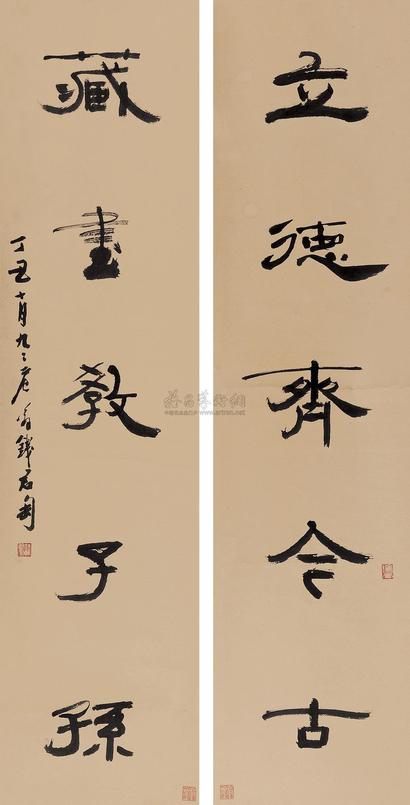 立德齊今古
藏書教子孫
丁丑十月九二叟 錢君匋
www.artron.net